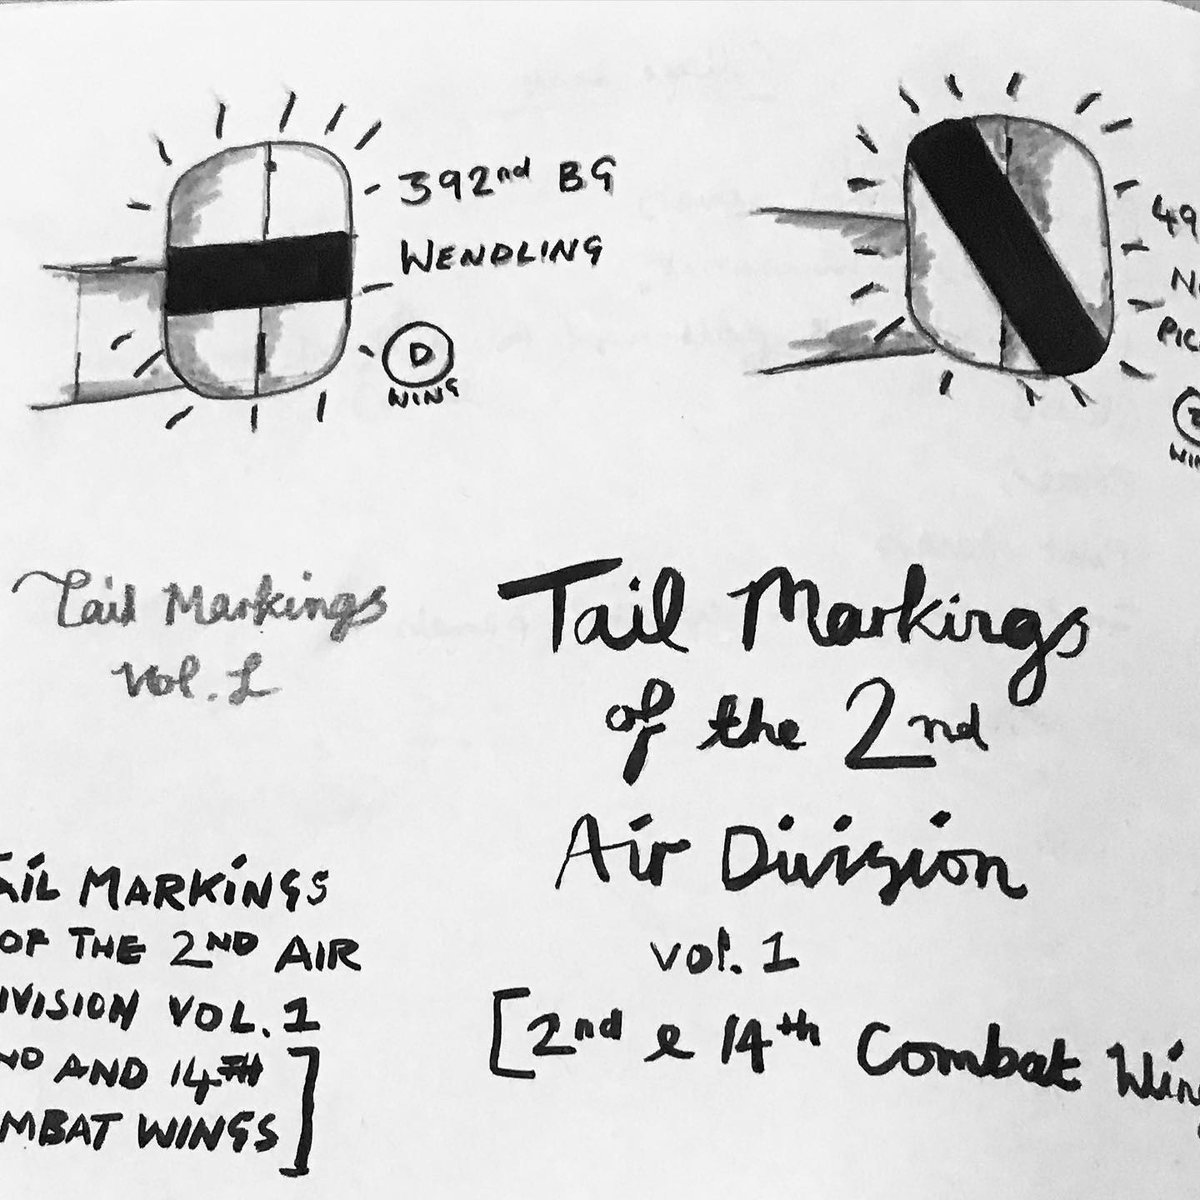 392nd BG
WENDLING
D
WING
49
N
PIC
WIN
Tail Markings
Vol. 1
Tail Markings
of the 2nd
Air Division
vol. 1
[2nd & 14th Combat Wing
AIL MARKINGS
OF THE 2ND AIR
IVISION VOL. 1
ND AND 14TH
MBAT WINGS]